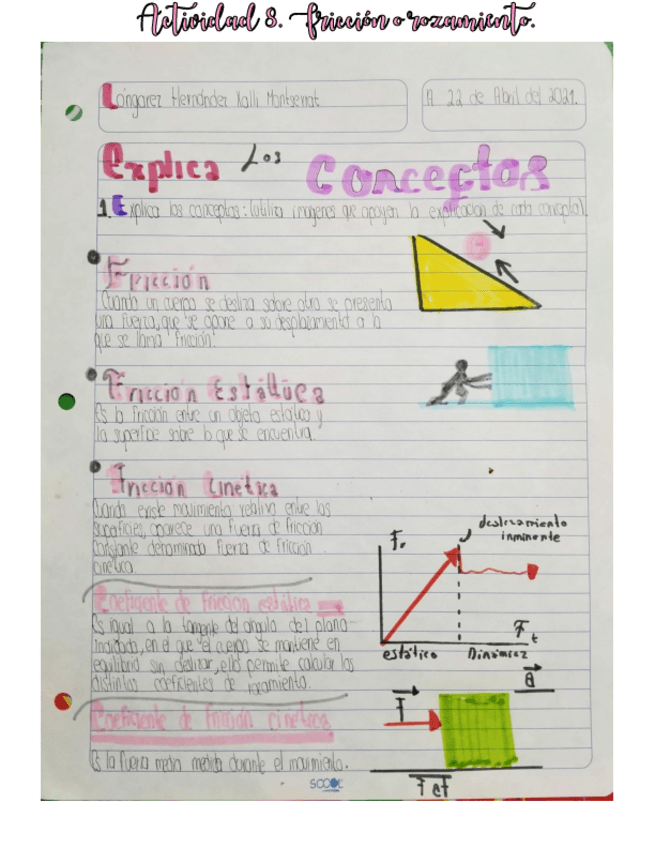 Actividad 8. fricción o rozamiento.
Longarez Hernández Xalli Montserrat
A 22 de Abril del 2021.
Explica Los Conceptos
1. Explica los conceptos: (utiliza imagenes que apoyen la explicacion de cada concepto).
• Fricción
Cuando un cuerpo se desliza sobre otro se presenta
una fuerza, que se opone a su desplazamiento a la
que se llama fricción.
• Fricción Estática
Es la fricción entre un objeto estatico y
la superficie sobre la que se encuentra.
• Fricción Cinética
Cuando existe movimiento relativo entre las
superficies, aparece una fuerza de fricción
constante denominada fuerza de fricción
cinética
deslizamiento
inminente
Fr
Ft
estático Dinámica
Coeficiente de fricción estática
Es igual a la tangente del angulo del plano
inclinado, en el que el cuerpo se mantiene en
equilibrio sin deslizar, ello permite calcular los
distintos coeficientes de rozamiento.
a
F
Coeficiente de fricción cinética
Es la fuerza media medida durante el movimiento.
SCOOL